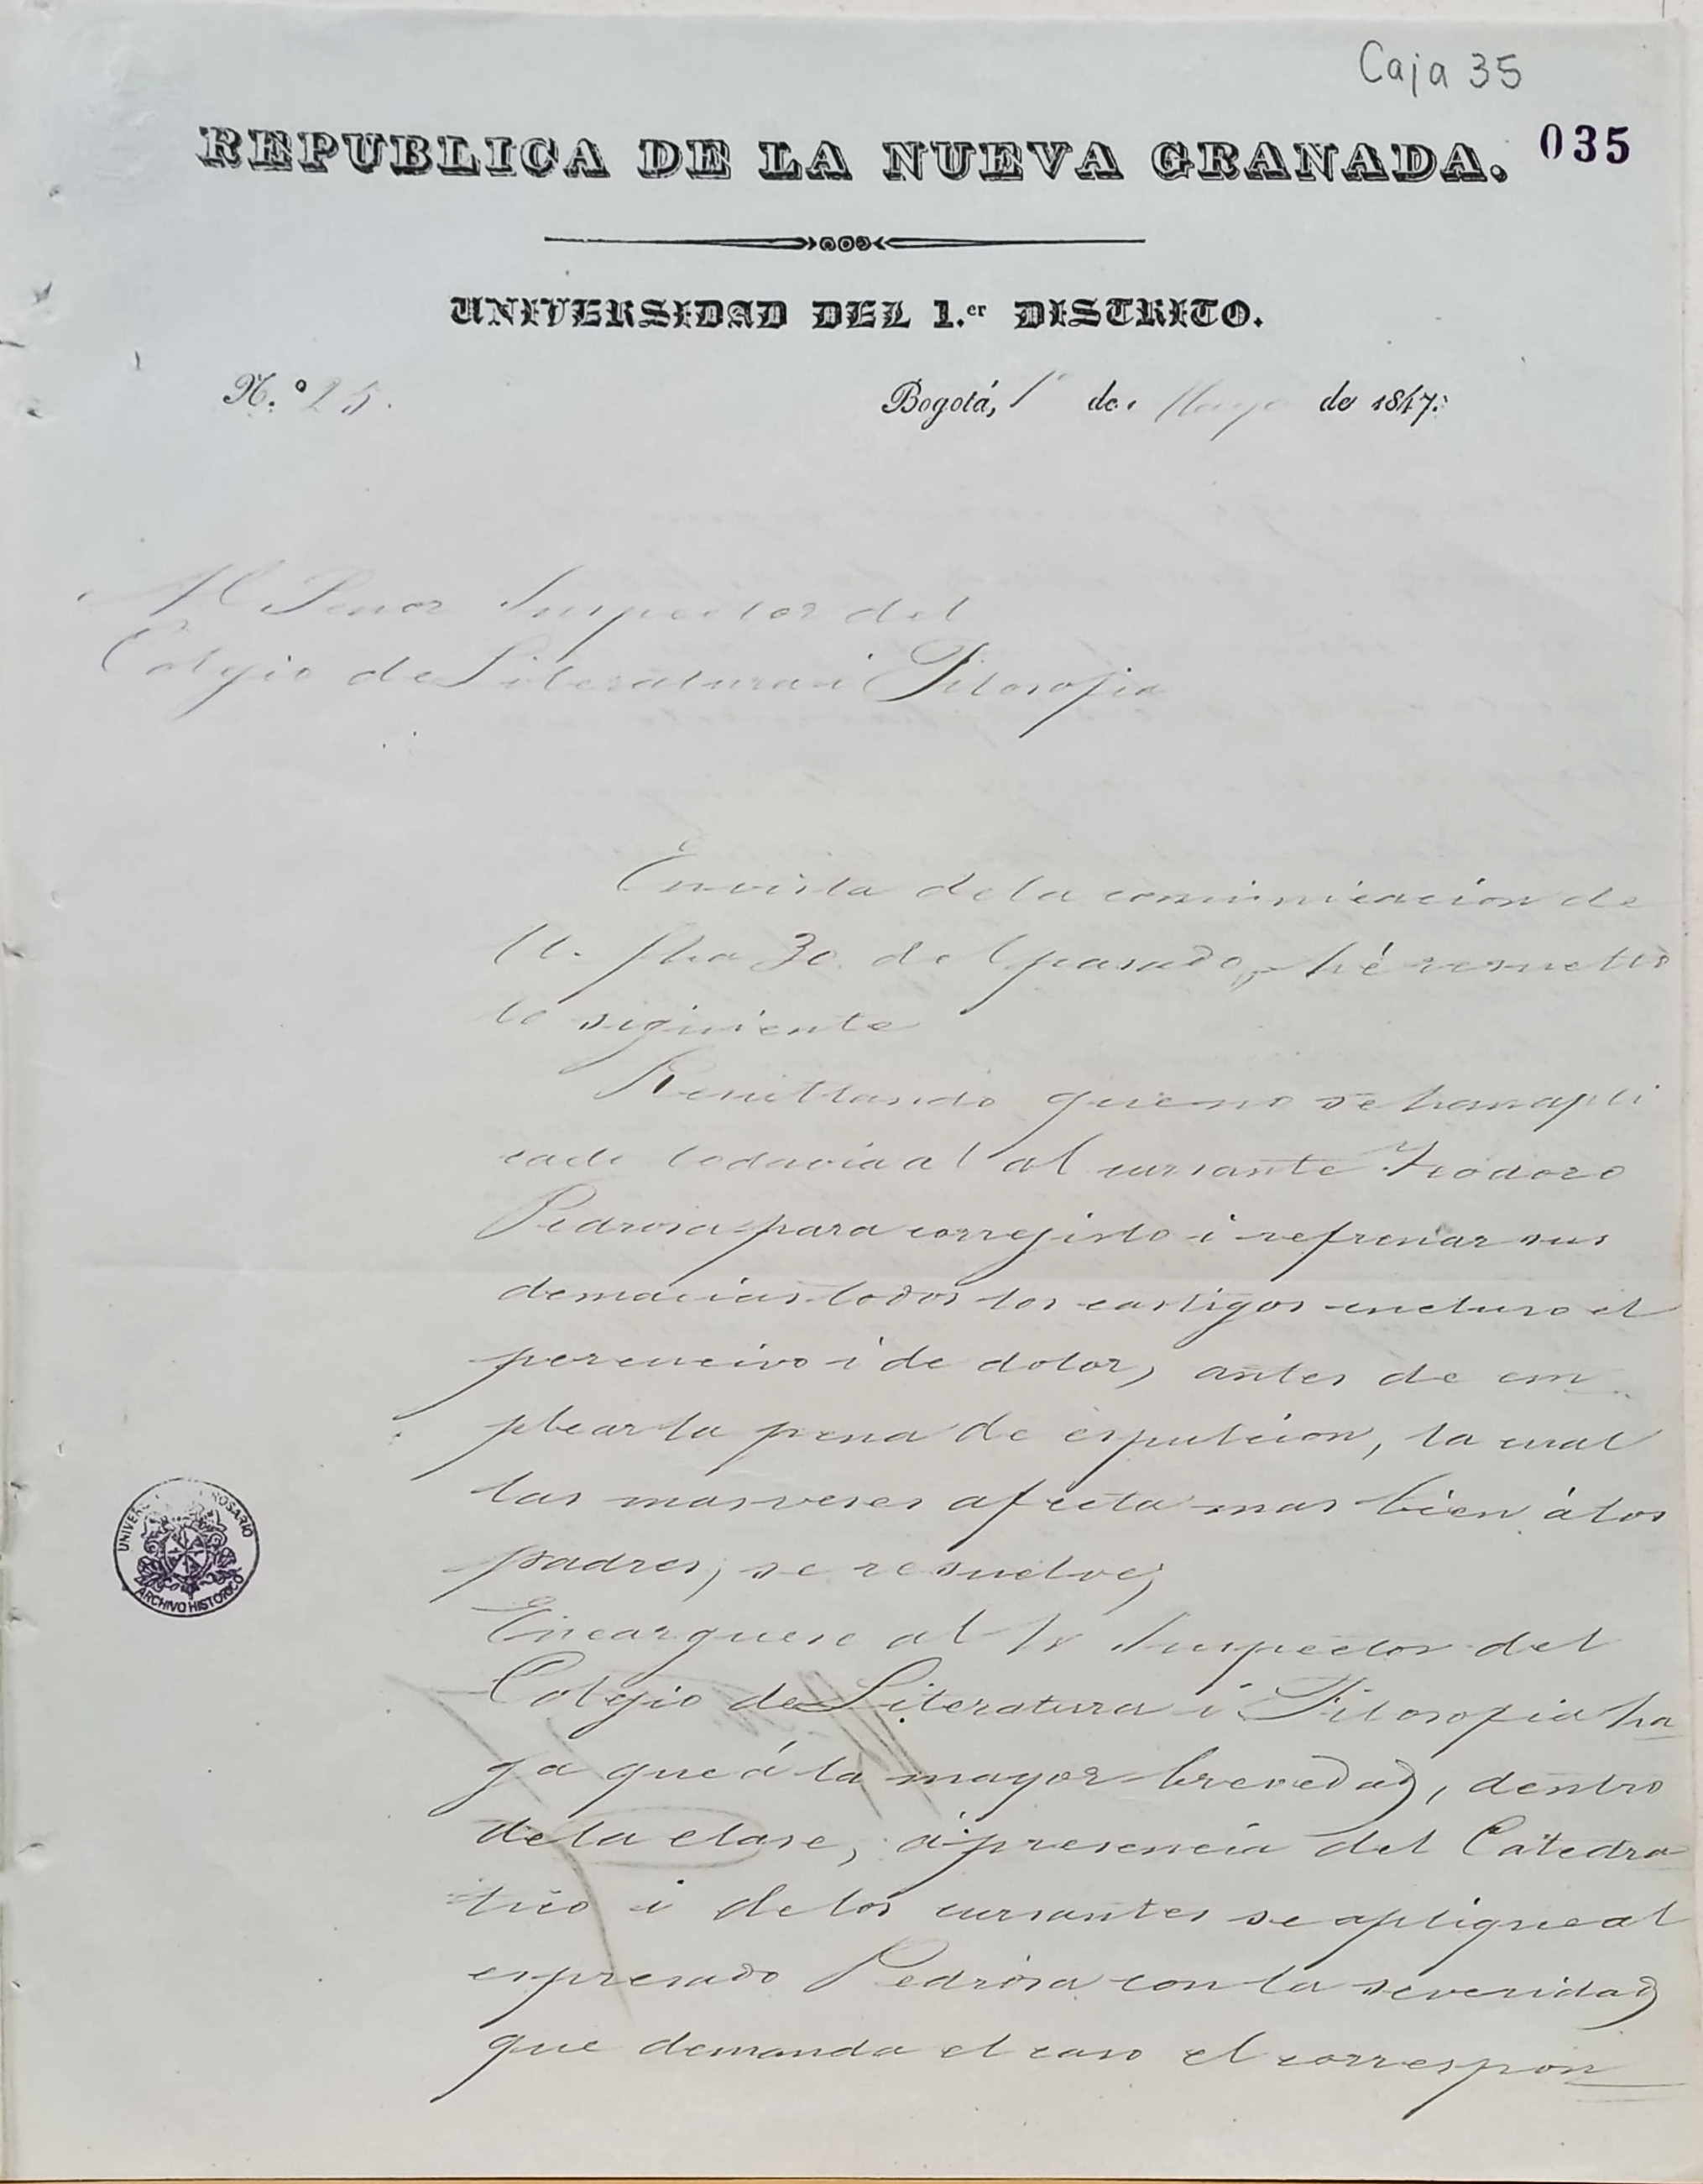 Caja 35
REPUBLICA DE LA NUEVA GRANADA. 035
UNIVERSIDAD DEL 1.er DISTRITO.
N.º 25. Bogotá, 1º de Mayo de 1847.
Al Señor Inspector del
Colejio de Literatura i Filosofia
En vista de la comunicacion de
U. fha 30. del pasado, hé resuelto
lo siguiente
Resultando que no se han apli
cado todavia al cursante Teodoro
Pedrosa para correjirlo i refrenar sus
demacias todos los castigos incluso el
i de dolor, antes de em
plear la pena de espulcion, la cual
las mas veses afecta mas bien á los
padres, se resuelve;
Encarguese al Sr Inspector del
Colejio de Literatura i Filosofia ha
ga que á la mayor brevedad, dentro
de la clase, á presencia del Catedra
tico i de los cursantes se aplique al
espresado Pedrosa con la severidad
que demanda el caso el correspon
UNIVERS ROSARIO
ARCHIVO HISTORICO